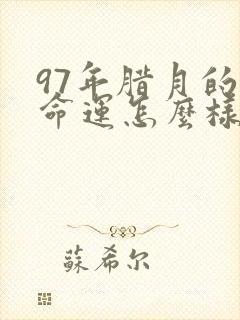 97年腊月的
命運怎麼樣
蘇希尔